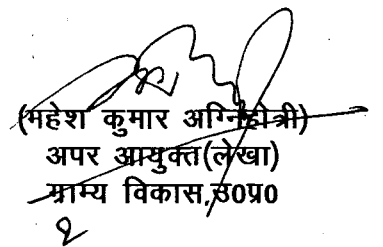 (महेश कुमार अग्निहोत्री)
अपर आयुक्त(लेखा)
ग्राम्य विकास,उ0प्र0